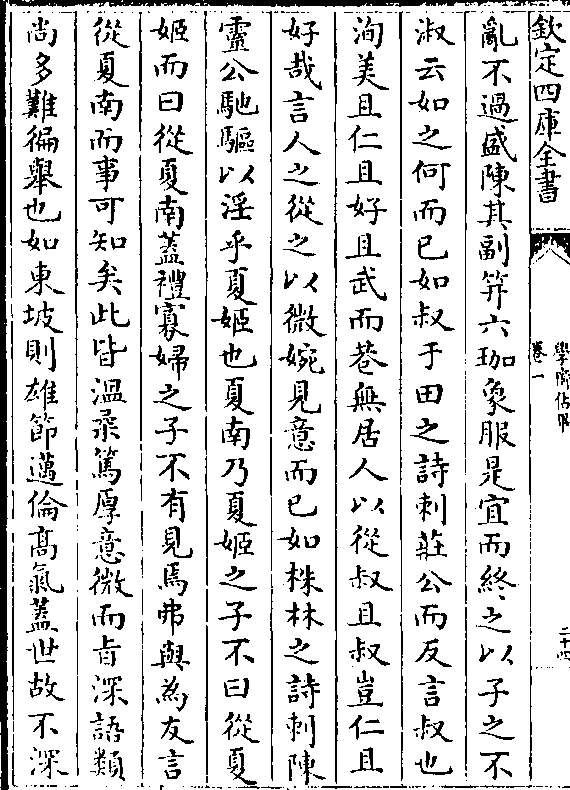 欽定四庫全書
學齋佔畢
卷一
二十四
亂不過盛陳其副笄六珈象服是宜而終之以子之不
淑云如之何而已如叔于田之詩刺莊公而反言叔也
洵美且仁且好且武而巷無居人以從叔且叔豈仁且
好哉言人之從之以微婉見意而已如株林之詩刺陳
靈公馳驅以淫乎夏姬也夏南乃夏姬之子不曰從夏
姬而曰從夏南蓋禮寡婦之子不有見焉弗與為友言
從夏南而事可知矣此皆溫柔篤厚意微而旨深語類
尚多難徧舉也如東坡則雄節邁倫髙氣蓋世故不深